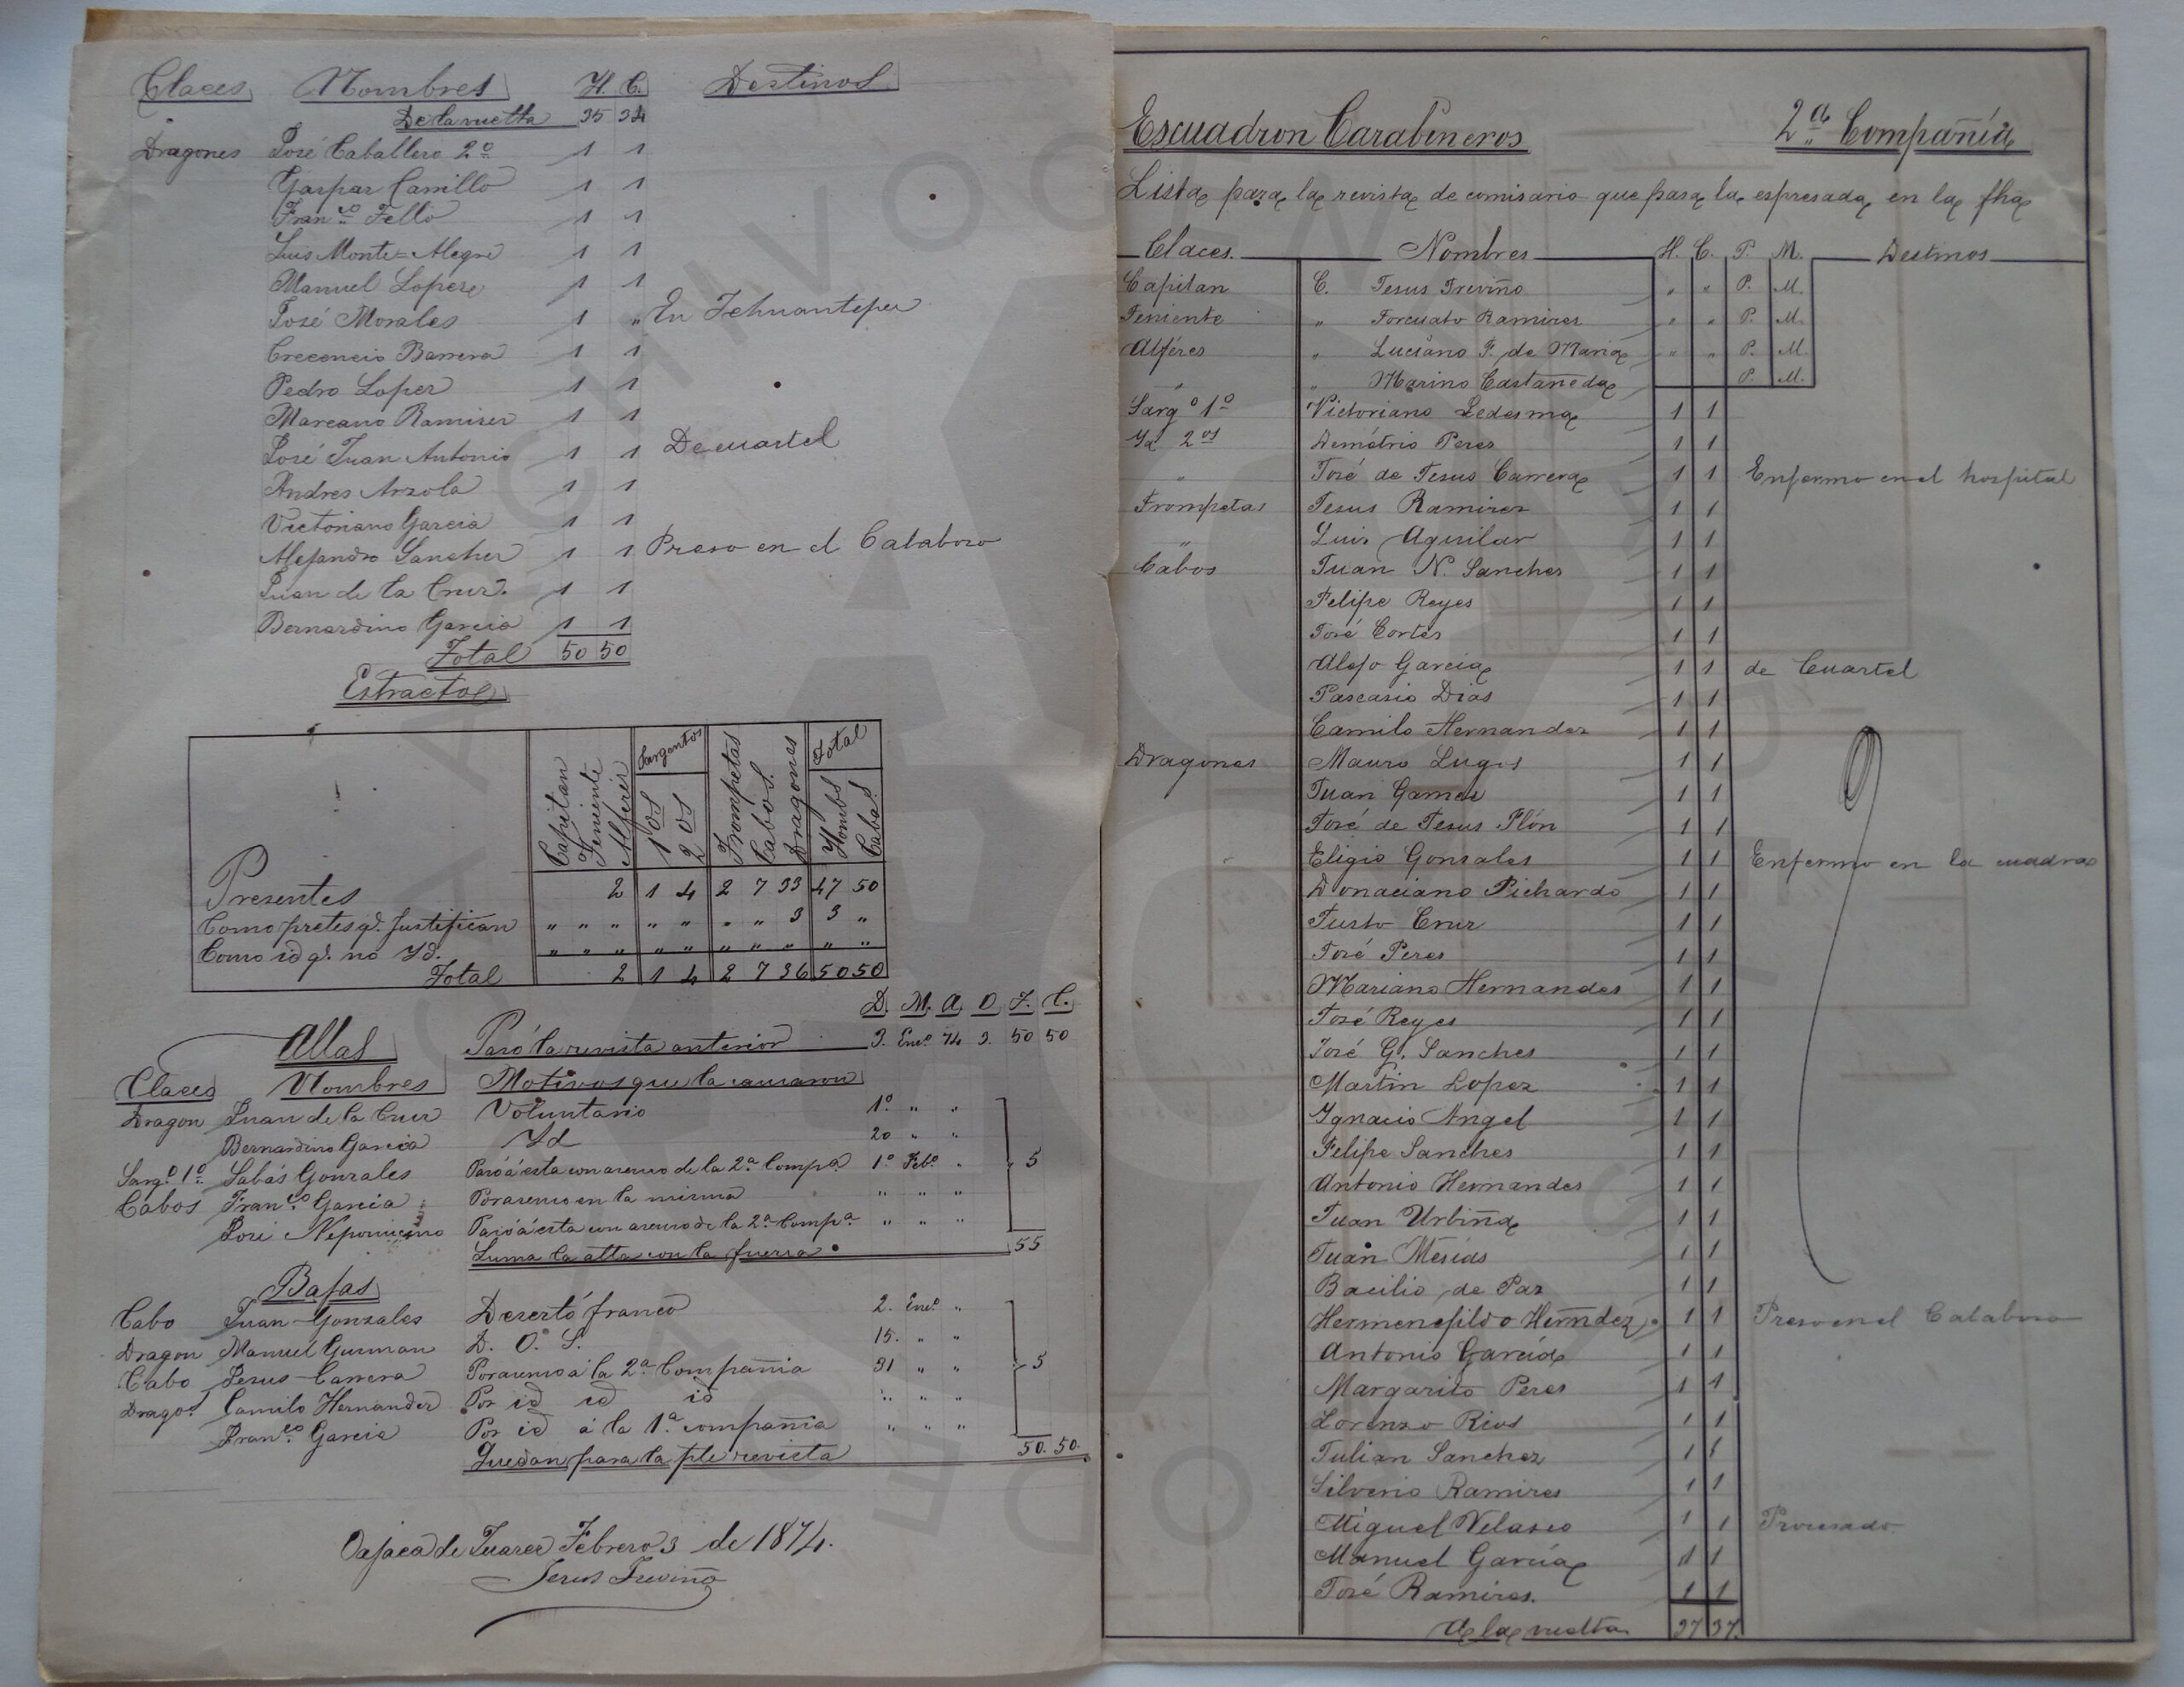 Claces Nombres H. C. Destinos
De la vuelta 35 34
Dragones José Caballero 2º 1 1
Gaspar Carrillo 1 1
Franco Tello 1 1
Luis Monte=Alegre 1 1
Manuel Lopez 1 1
José Morales 1 „ En Tehuantepec
Crecencio Barrera 1 1
Pedro Lopez 1 1
Marcano Ramirez 1 1
José Juan Antonio 1 1 De cuartel
Andres Arzola 1 1
Victoriano Garcia 1 1
Alejandro Sanchez 1 1 Preso en el Calaboso
Juan de la Cruz. 1 1
Bernardino Garcia 1 1
Total 50 50
Estracto
Capitan Teniente Alferez Sargentos 1os 2os Trompetas Cabos. Dragones Total Hombs Cabas
Presentes 2 1 4 2 7 33 47 50
Como prestes q. Justifican „ „ „ „ „ „ „ 3 3 „
Como id q. no Yd. „ „ „ „ „ „ „ „ „ „
Total 2 1 4 2 7 36 50 50
D. M. A. O. F. C.
Altas Pasó la revista anterior 3. Eno. 74 3. 50 50
Claces Nombres Motivos que la causaron
Dragon Juan de la Cruz Voluntario 1º „ „
Bernardino Garcia Yd 20 „ „
Sargº 1º Sabás Gonzales Pasó á esta con acenso de la 2ª Compª 1º Febº „ 5
Cabos Franco Garcia Por acenso en la misma „ „ „
José Nepomuceno Pasó á esta con acenso de la 2ª Compª „ „ „
Suma la alta con la fuersa 55
Bajas
Cabo Juan Gonzales Desertó franco 2. Eno. „
Dragon Manuel Gusman D. O. S. 15. „ „
Cabo Jesus Carrera Por acenso á la 2ª Compañia 31 „ „ 5
Dragon Camilo Hernandez Por id id id „ „ „
Franco Garcia Por id á la 1ª compañia „ „ „
Quedan para la pte revista 50. 50.
Oajaca de Juarez Febrero 3 de 1874.
Jesus Treviño
Escuadron Carabineros 2ª Compañía
Lista para la revista de comisario que pasa la espresada en la fha
Claces. Nombres H. C. P. M. Destinos
Capitan C. Jesus Treviño „ „ P. M.
Teniente „ Torcuato Ramires „ „ P. M.
Alféres „ Luciano P. de Maria „ „ P. M.
„ „ Marino Castañeda P. M.
Sargº 1º Victoriano Ledesma 1 1
Yd 2os Demétrio Peres 1 1
„ José de Jesus Carrera 1 1 Enfermo en el hospital
Trompetas Jesus Ramirez 1 1
„ Luis Aguilar 1 1
Cabos Juan N. Sanches 1 1
Felipe Reyes 1 1
José Cortés 1 1
Alejo Garcia 1 1 de Cuartel
Pascasio Dias 1 1
Camilo Hernandez 1 1
Dragones Mauro Lugos 1 1
Juan Gomes 1 1
José de Jesus Plón 1 1
Eligio Gonsales 1 1 Enfermo en la cuadra
Donaciano Pichardo 1 1
Justo Cruz 1 1
José Peres 1 1
Mariano Hernandes 1 1
José Reyes 1 1
José G. Sanches 1 1
Martin Lopez 1 1
Ygnacio Angel 1 1
Felipe Sanches 1 1
Antonio Hernandes 1 1
Juan Urbiña 1 1
Juan Mesías 1 1
Bacilio de Paz 1 1
Hermenejildo Hernndez 1 1 Preso en el Calaboso
Antonio García 1 1
Margarito Peres 1 1
Lorenzo Rios 1 1
Julian Sanchez 1 1
Silverio Ramires 1 1
Miguel Velasco 1 1 Procesado.
Manuel García 1 1
José Ramires. 1 1
A la vuelta 37 37.